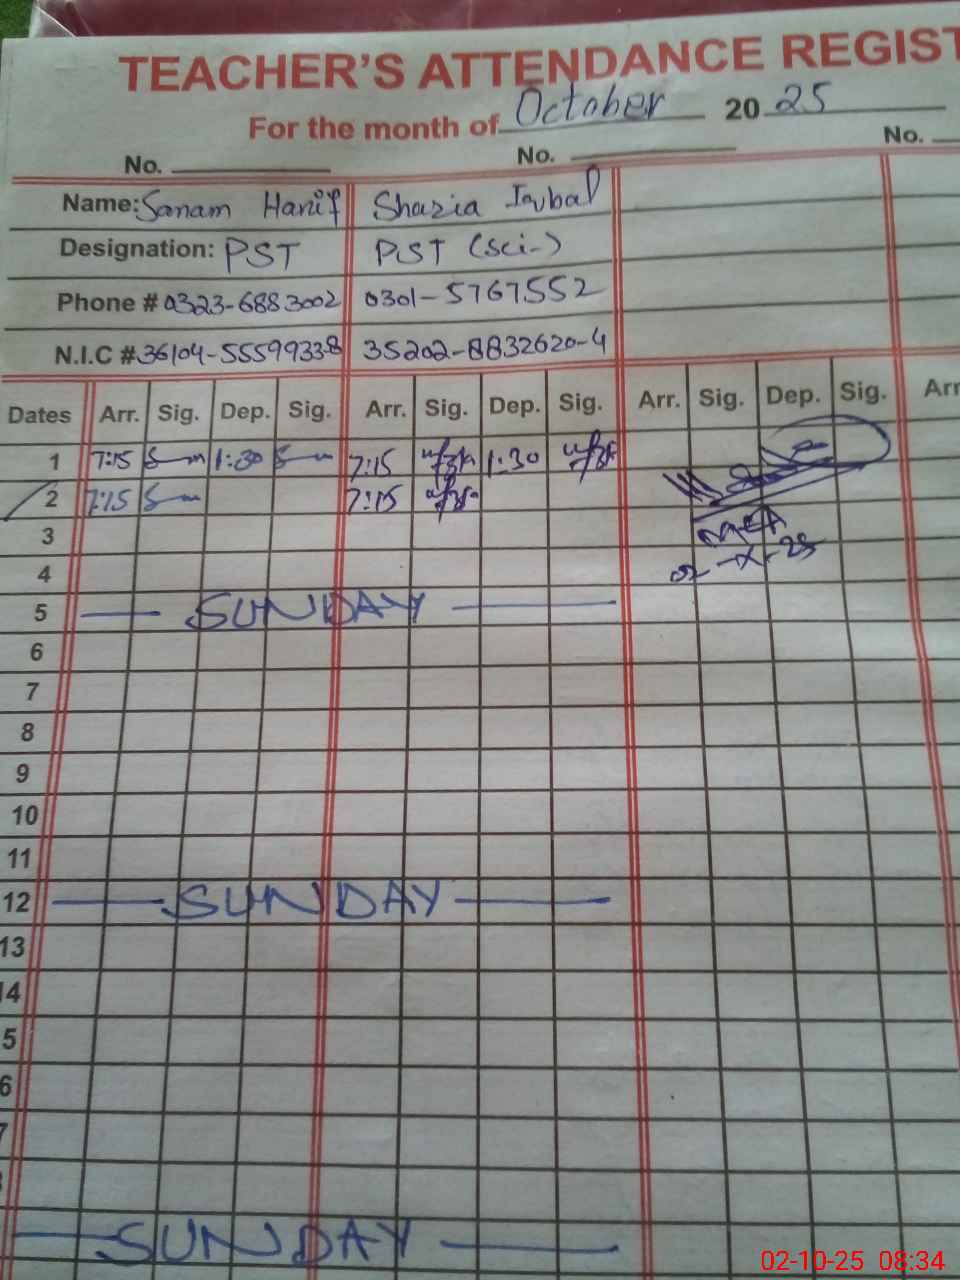 TEACHER'S ATTENDANCE REGIST
For the month of October 2025
No. No. No.
Name: Sanam Hanif Shazia Iqbal
Designation: PST PST (Sci-)
Phone # 0323-6883002 0301-5767552
N.I.C # 36104-5559933-8 35202-8832620-4
Dates Arr. Sig. Dep. Sig. Arr. Sig. Dep. Sig. Arr. Sig. Dep. Sig. Arr
1 7:15 1:30 7:15 1:30
2 7:15 7:15
MEA
02-X-25
3
4
5 SUNDAY
6
7
8
9
10
11
12 SUNDAY
13
14
5
6
7
SUNDAY
02-10-25 08:34